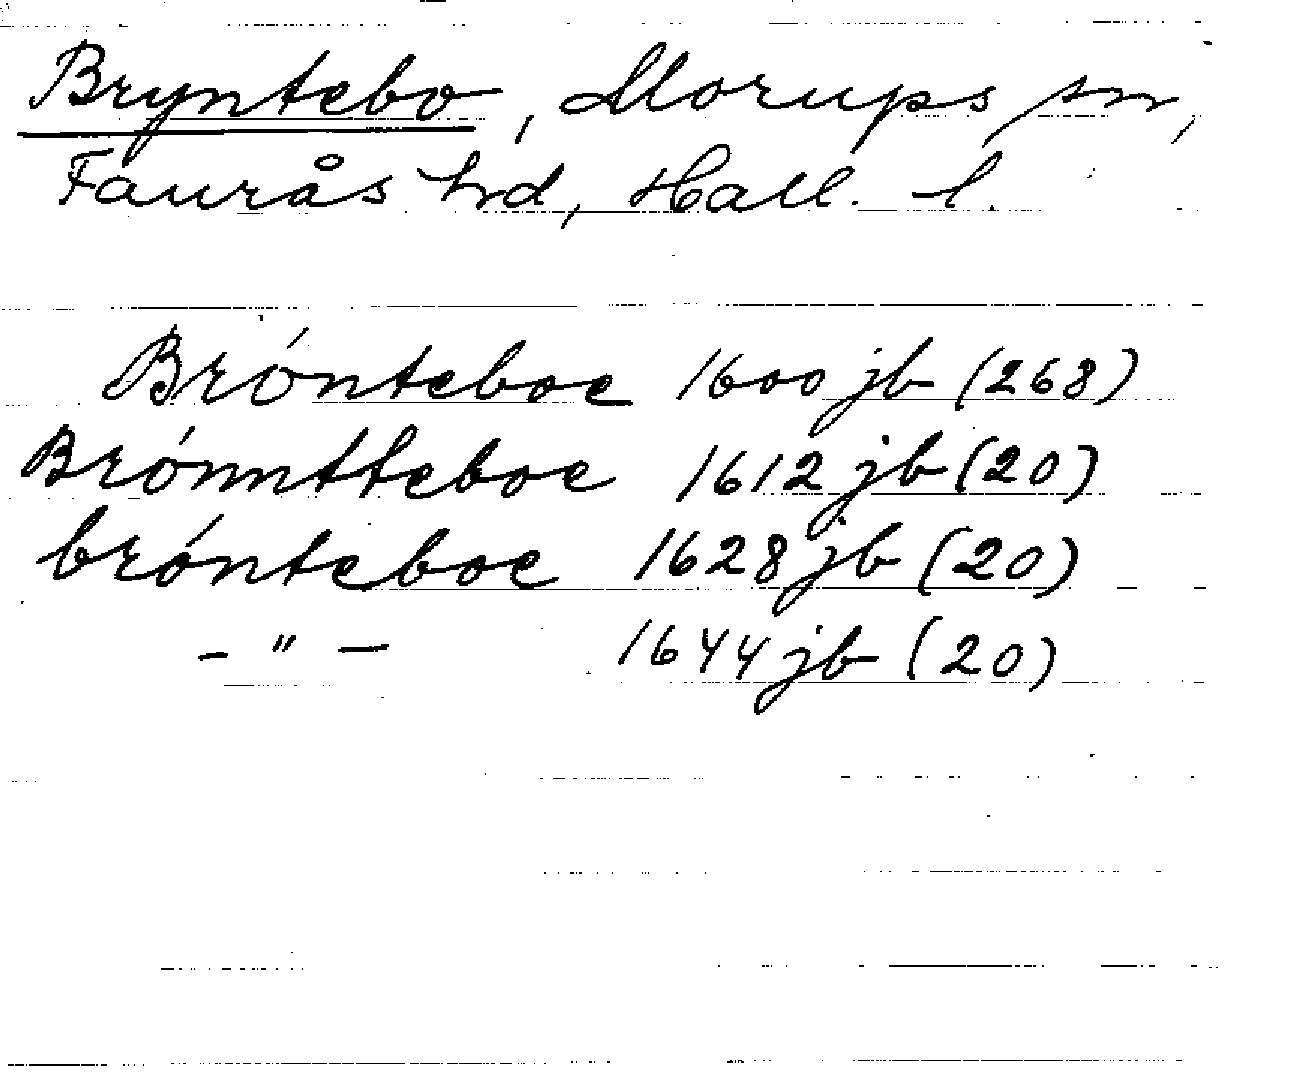 Bryntebo, Morups sn,
Faurås hrd, Hall. l.
Brónteboe 1600 jb (268)
Brónntteboe 1612 jb (20)
brónteboe 1628 jb (20)
– " – 1644 jb (20)